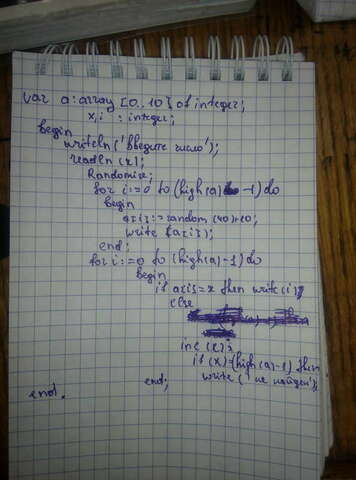 var a: array [0..10] of integer;
x, i : integer;
begin
writeln ('Введите число');
readln (x);
Randomize;
for i:=0 to (high(a) -1) do
begin
a[i]:=random (40)+10;
write (a[i]);
end;
for i:=0 to (high(a)-1) do
begin
if a[i]=x then write(i)
else
inc (x);
if (x)=(high(a)-1) then
write ('не найден');
end;
end.